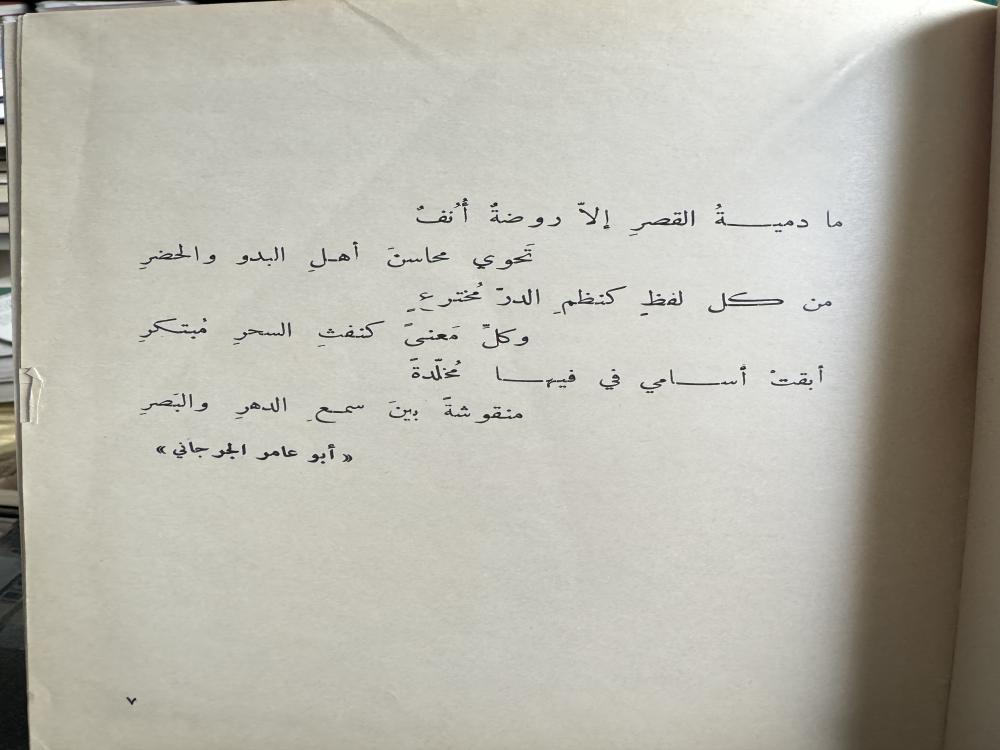 ما دميـــةُ القصرِ إلاّ روضةٌ أُنفٌ
تَحوي محاسنَ أهـلِ البدو والحضرِ
من كـل لفظٍ كنظمِ الدرّ مُخترعٍ
وكلِّ مَعنىً كنفثِ السحرِ مُبتكرِ
أبقتْ أســامي في فيهــا مُخلّدةً
منقوشةً بينَ سمـعِ الدهرِ والبَصرِ
« أبو عامر الجرجاني »
٧